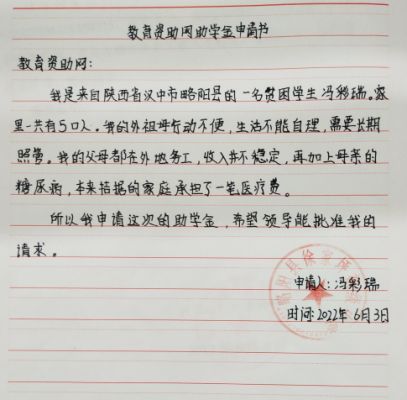 教育资助网助学金申请书
教育资助网：
我是来自陕西省汉中市略阳县的一名贫困学生冯彩瑞。家
里一共有5口人。我的外祖母行动不便，生活不能自理，需要长期
照管。我的父母都在外地务工，收入并不稳定，再加上母亲的
糖尿病，本来拮据的家庭承担了一笔医疗费。
所以我申请这次的助学金，希望领导能批准我的
请求。
申请人：冯彩瑞
时间：2022年6月3日
略阳县徐家坪